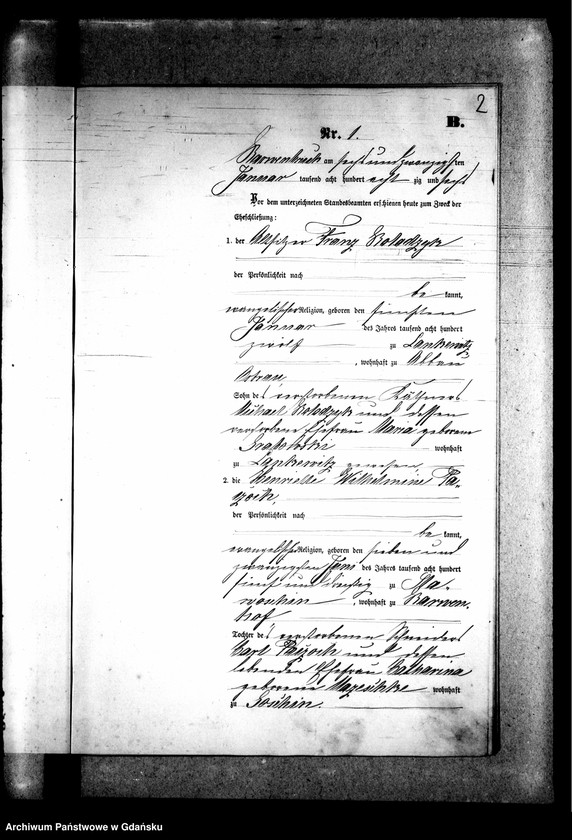 2
B.
Nr. 1.
am sechs und zwanzigsten
Januar tausend acht hundert acht zig und sechs
Vor dem unterzeichneten Standesbeamten erschienen heute zum Zweck der
Eheschließung:
1. der Altsitzer Franz Kolodzyk
der Persönlichkeit nach
be kannt,
evangelischer Religion, geboren den fünften
Januar des Jahres tausend acht hundert
zwölf zu Lankewitz
, wohnhaft zu Abbau
Sohn des verstorbenen Käthners
Michael Kolodzyk und dessen
verstorbene Ehefrau Maria geborene
wohnhaft
zu Lankewitz gewesen
2. die Henriette Wilhelmine Pa-
der Persönlichkeit nach
be kannt,
evangelischer Religion, geboren den sieben und
zwanzigsten Juni des Jahres tausend acht hundert
fünf und dreißig zu
, wohnhaft zu
hof
Tochter des verstorbenen Schneiders
Carl und dessen
lebenden Ehefrau Catharina
geborene wohnhaft
zu
Archiwum Państwowe w Gdańsku